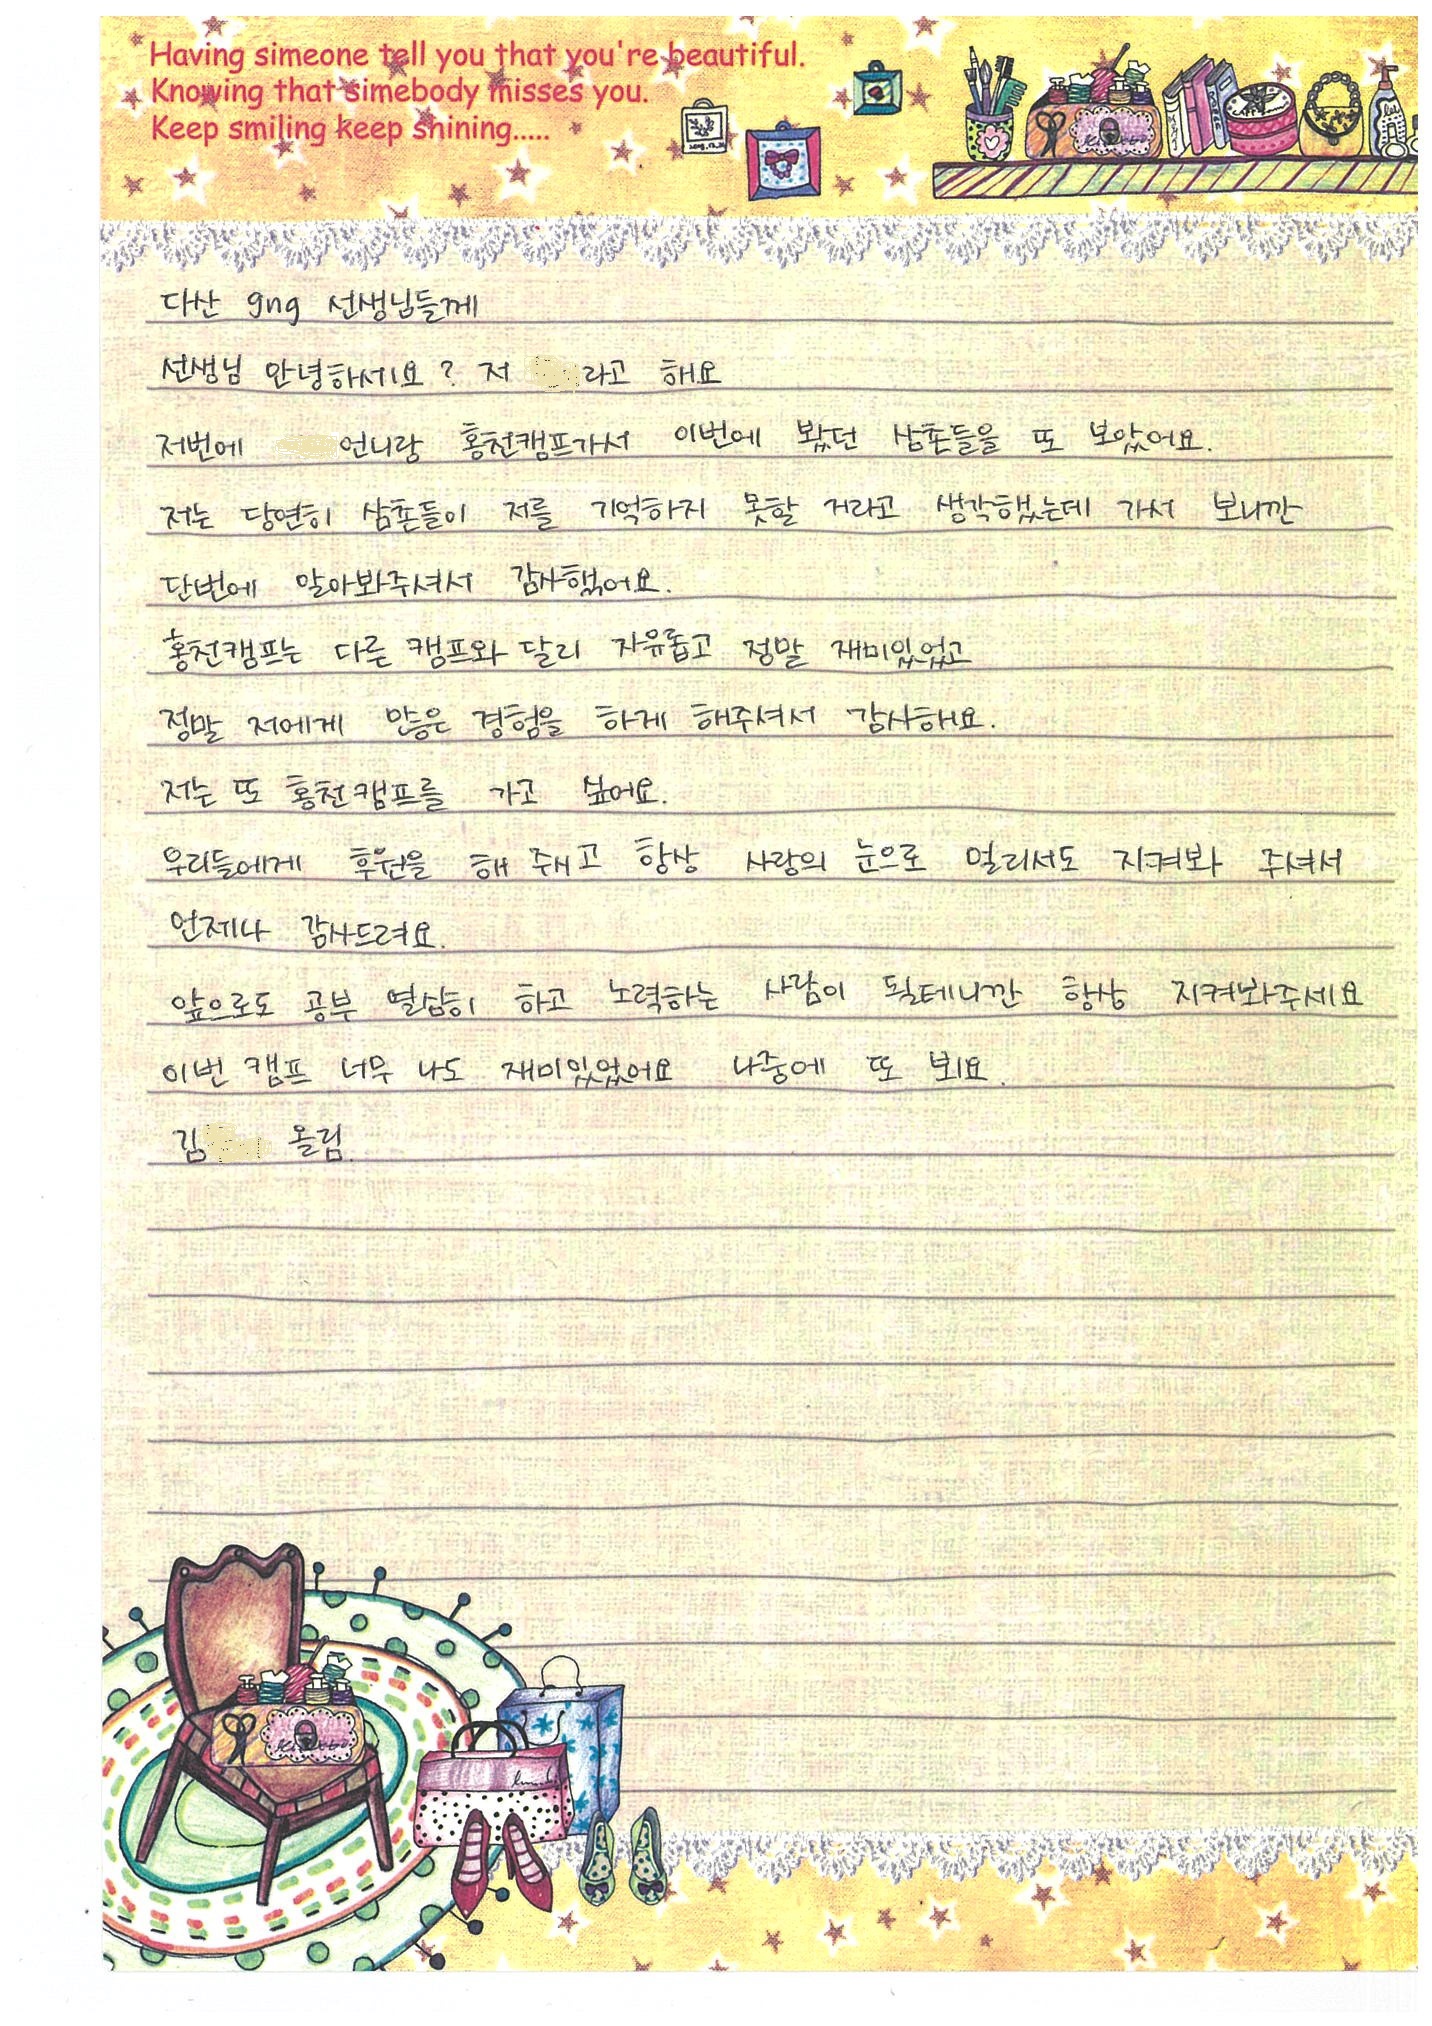 Having simeone tell you that you're beautiful.
Knowing that simebody misses you.
Keep smiling keep shining.....
다산 gng 선생님들께
선생님 안녕하세요? 저 라고 해요
저번에 언니랑 홍천캠프가서 이번에 봤던 삼촌들을 또 보았어요.
저는 당연히 삼촌들이 저를 기억하지 못할 거라고 생각했는데 가서 보니깐
단번에 알아봐주셔서 감사했어요.
홍천캠프는 다른 캠프와 달리 자유롭고 정말 재미있었고
정말 저에게 많은 경험을 하게 해주셔서 감사해요.
저는 또 홍천캠프를 가고 싶어요.
우리들에게 후원을 해 주고 항상 사랑의 눈으로 멀리서도 지켜봐 주셔서
언제나 감사드려요.
앞으로도 공부 열심히 하고 노력하는 사람이 될테니깐 항상 지켜봐주세요
이번 캠프 너무 나도 재미있었어요 나중에 또 뵈요.
김 올림.